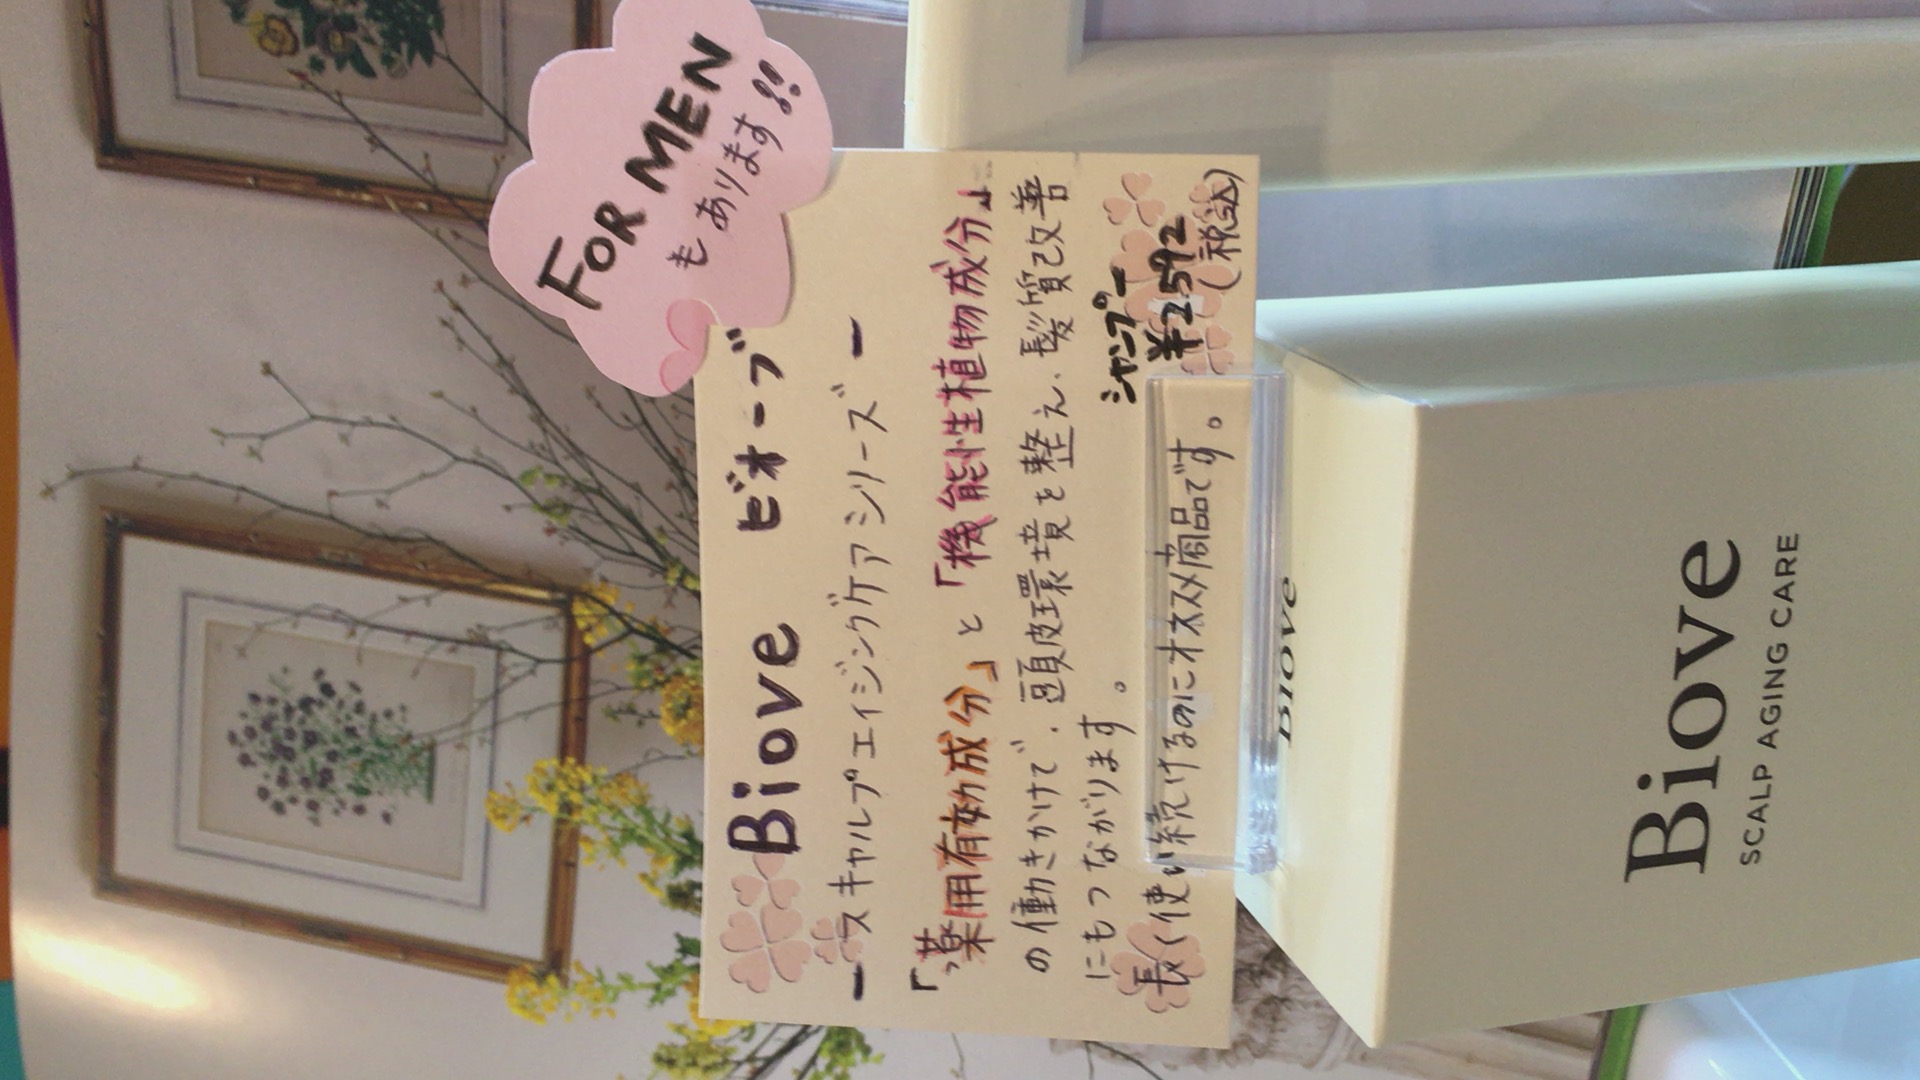 FOR MEN
もあります!!
Biove ビオーブ
ースキャルプエイジングケアシリーズー
「薬用有効成分」と「機能性植物成分」
の働きかけで、頭皮環境を整え、髪質改善
にもつながります。
長く使い続けるのにオススメ商品です。
シャンプー
¥2,592
(税込)
Biove
Biove
SCALP AGING CARE